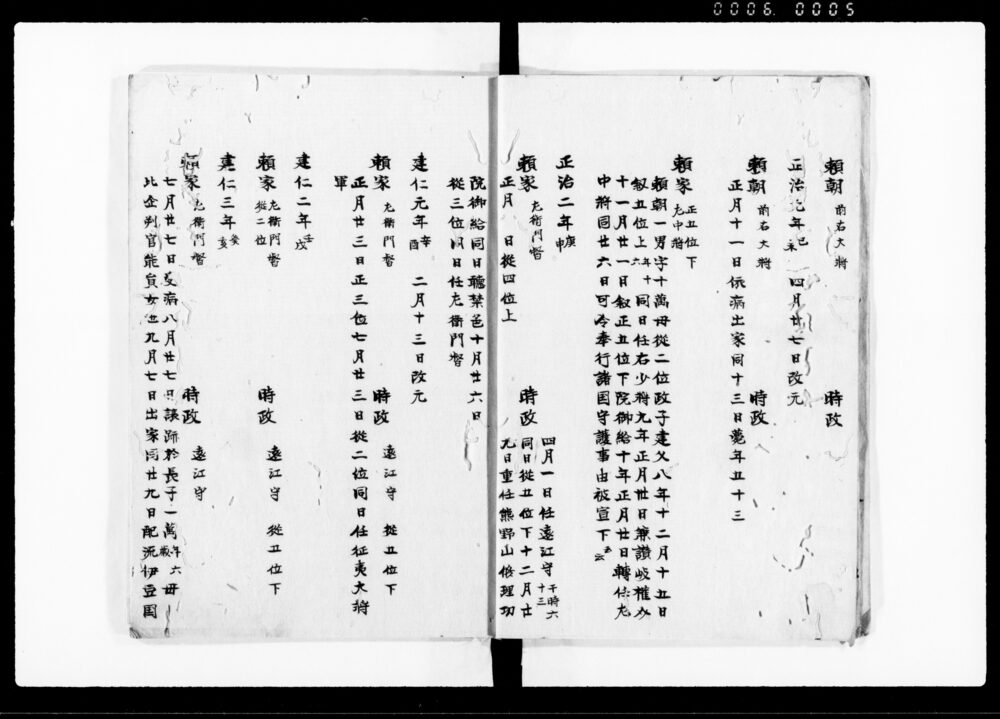 0006.0005
頼朝 前右大将 時政
正治元年己未 四月廿七日改元
頼朝 前右大将 時政
正月十一日依病出家同十三日薨年五十三
頼家 正五位下 左中将
頼朝一男字十萬母従二位政子建久八年十二月十五日
叙五位上年十六同日任右少将九年正月廿日兼讃岐権介
十一月廿一日叙正五位下院御給十年正月廿日轉任左
中将同廿六日可令奉行諸国守護事由被宣下云云
正治二年庚申
頼家 左衛門督 時政 四月一日任遠江守于時六十三
正月 日従四位上 同日従五位下十二月廿
九日重任熊野山修理功
院御給同日聴禁色十月廿六日
従三位同日任左衛門督
建仁元年辛酉 二月十三日改元
頼家 左衛門督 時政 遠江守 従五位下
正月廿三日正三位七月廿三日従二位同日任征夷大将
軍
建仁二年壬戌
頼家 左衛門督 従二位 時政 遠江守 従五位下
建仁三年癸亥
頼家 左衛門督 時政 遠江守
七月廿七日受病八月廿七日譲跡於長子一萬年六歳母
比企判官能員女也九月七日出家同廿九日配流伊豆国